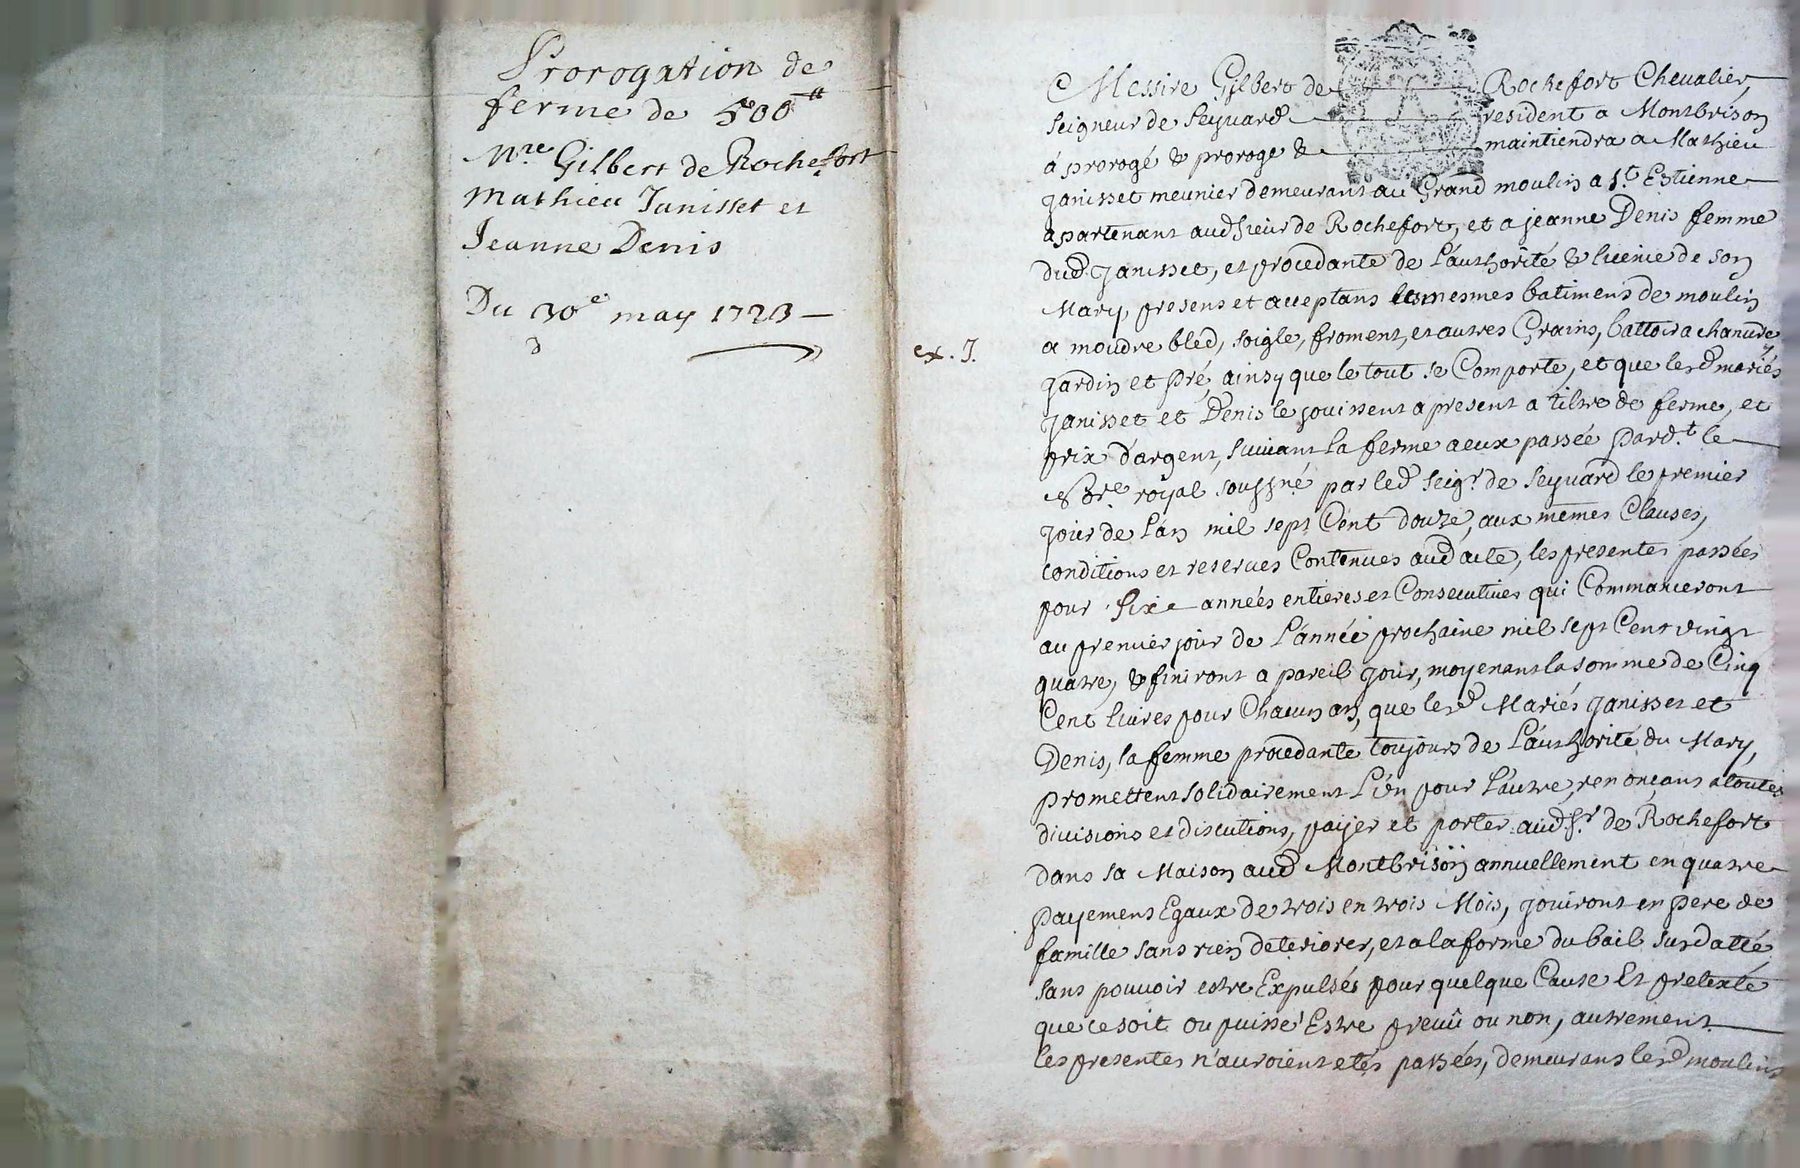 Prorogation de
ferme de 500 ᵗᵗ
Mre Gilbert de Rochefort
Mathieu Janisset et
Jeanne Denis
Du 30e may 1723
3
ex. J.
Messire Gilbert de Rochefort Chevalier,
seigneur de Seyuard resident a Montbrison
à prorogé & proroge & maintiendra a Mathieu
janisset meunier demeurant au Grand moulin a St. Estienne
apartenant aud sieur de Rochefort, et a jeanne Denis femme
dud. janisset, et procedante de L'authorité & licence de son
Mary presens et acceptans les mesmes batimens de moulin
a moudre bled, soigle, froment, et autres Grains, battoir a chanvre
jardin et pré, ainsy que le tout se Comporte, et que lesd mariés
janisset et Denis le jouissent a present a tiltre de ferme, et
prix d'argent, suivant la ferme a eux passée pard.t le
Nore royal soussné par led seigr de Seyuard le premier
jour de L'an mil sept Cent douze, aux mêmes Clauses,
conditions et reserves Contenues aud acte, les presentes passées
pour six années entieres et Consecutives qui Commanceront
au premier jour de L'année prochaine mil sept Cent vingt
quatre, & finiront a pareil jour, moyenant la somme de Cinq
Cent livres pour Chacun an, que lesd Mariés janisset et
Denis, la femme procedante toujours de L'authorité du Mary,
promettent solidairement L'un pour L'autre, renonçans a toutes
divisions et discutions, payer et porter aud Sr de Rochefort
dans sa Maison aud Montbrison annuellement en quatre
payemens Egaux de trois en trois Mois, jouiront en pere de
famille sans rien deteriorer, et a la forme du bail susdatté
sans pouvoir estre Expulsés pour quelque Cause Et pretexte
que ce soit ou puisse Estre preuû ou non, autrement
les presentes n'auroient etés passées, demeurans lesd moulins